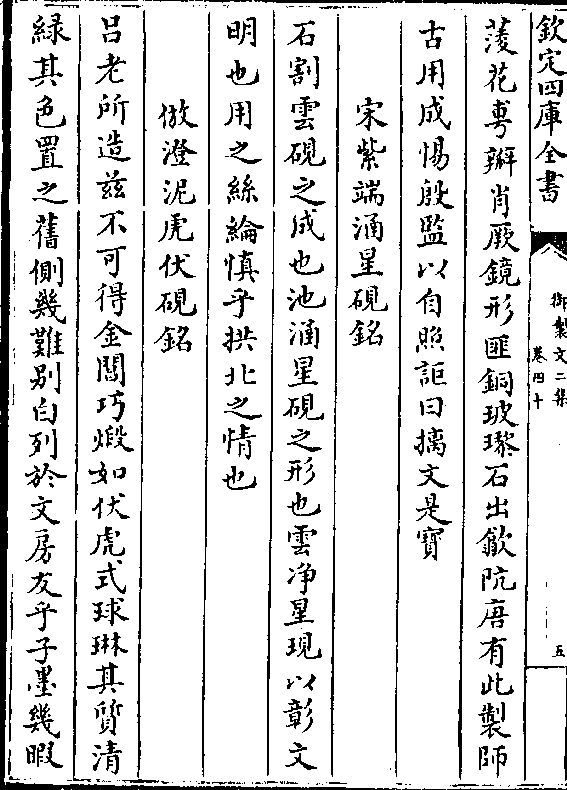 欽定四庫全書
御製文二集
卷四十
五
菱花粤辦肖厥鏡形匪銅玻瓈石出歙阬唐有此製師
古用成惕殷監以自照詎曰摛文是寶
宋紫端涌星硯銘
石割雲硯之成也池涌星硯之形也雲净星現以彰文
明也用之絲綸慎乎拱北之情也
倣澄泥虎伏硯銘
吕老所造兹不可得金閶巧煅如伏虎式球琳其質清
緑其色置之舊側幾難别白列於文房友乎子墨幾暇